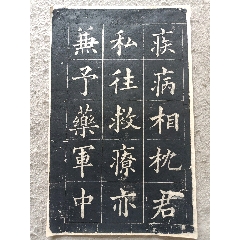 疾病相枕君
私往救療亦
兼予藥軍中